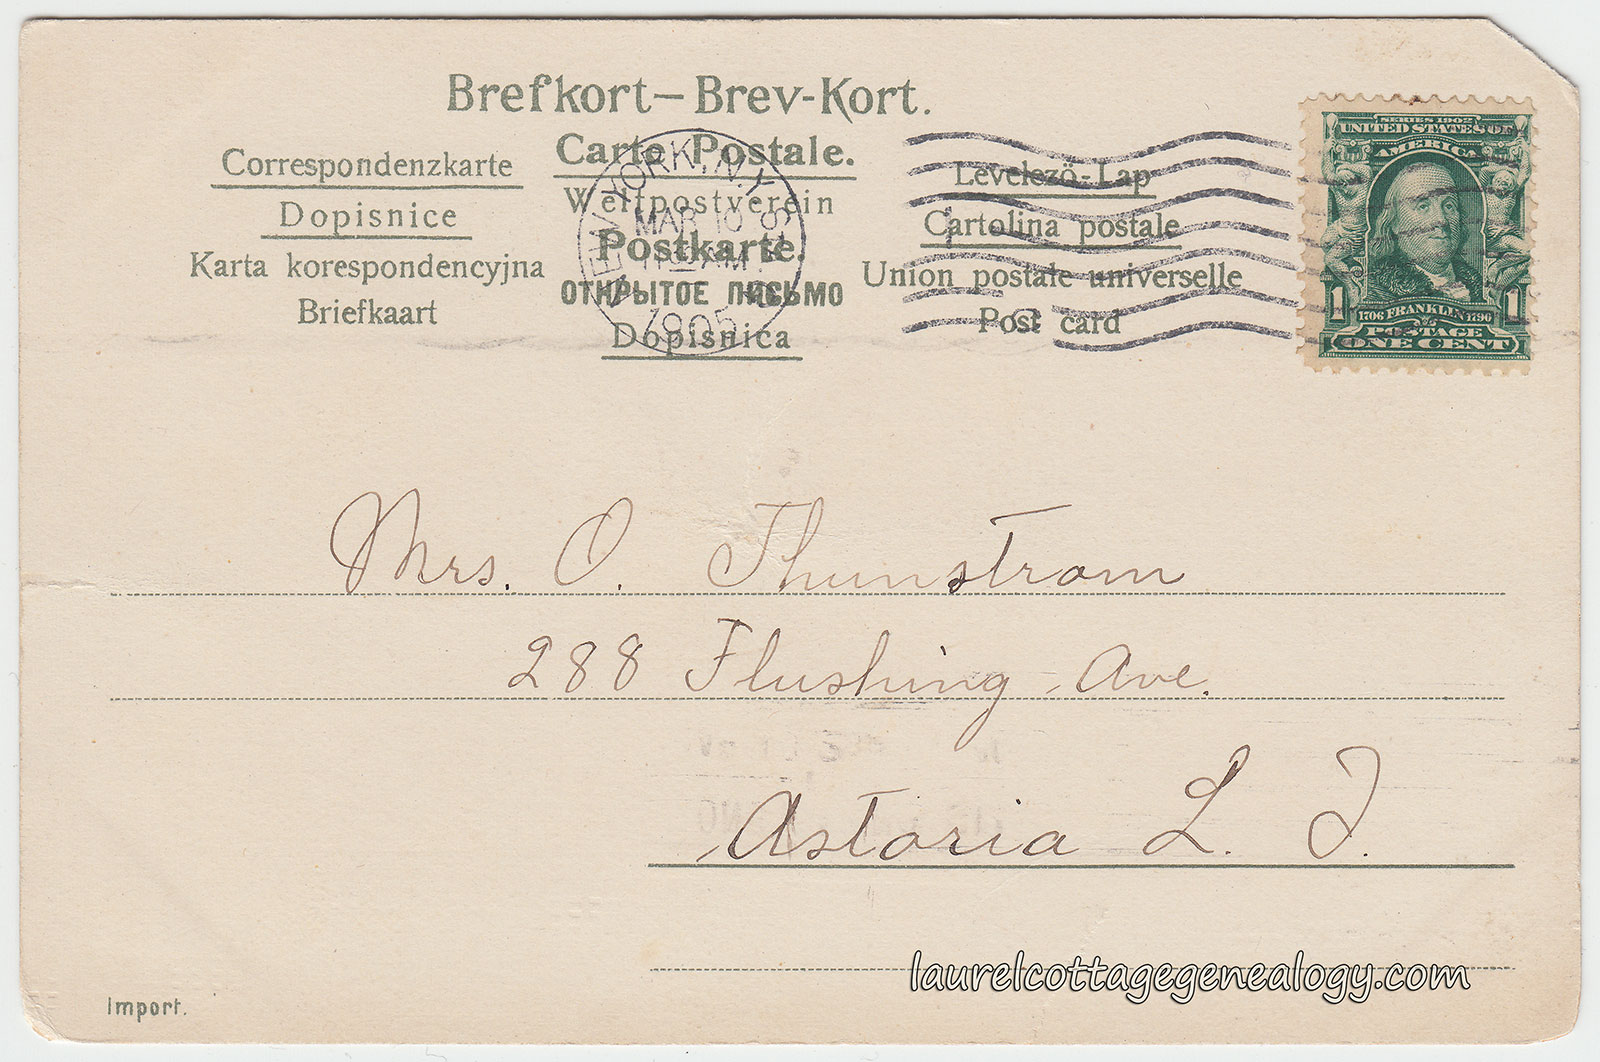 Brefkort – Brev-Kort.
Carte Postale.
Correspondenzkarte
Weltpostverein
Levelező-Lap
Dopisnice
Postkarte.
Cartolina postale
Karta korespondencyjna
ОТКРЫТОЕ ПИСЬМО
Union postale universelle
Briefkaart
Dopisnica
Post card
NEW YORK, N.Y.
MAR 10
1905
SERIES 1902
UNITED STATES OF
AMERICA
1 1
1706 FRANKLIN 1790
POSTAGE
ONE CENT
Mrs. O. Thunstrom
288 Flushing Ave.
Astoria L. I.
laurelcottagegenealogy.com
Import.